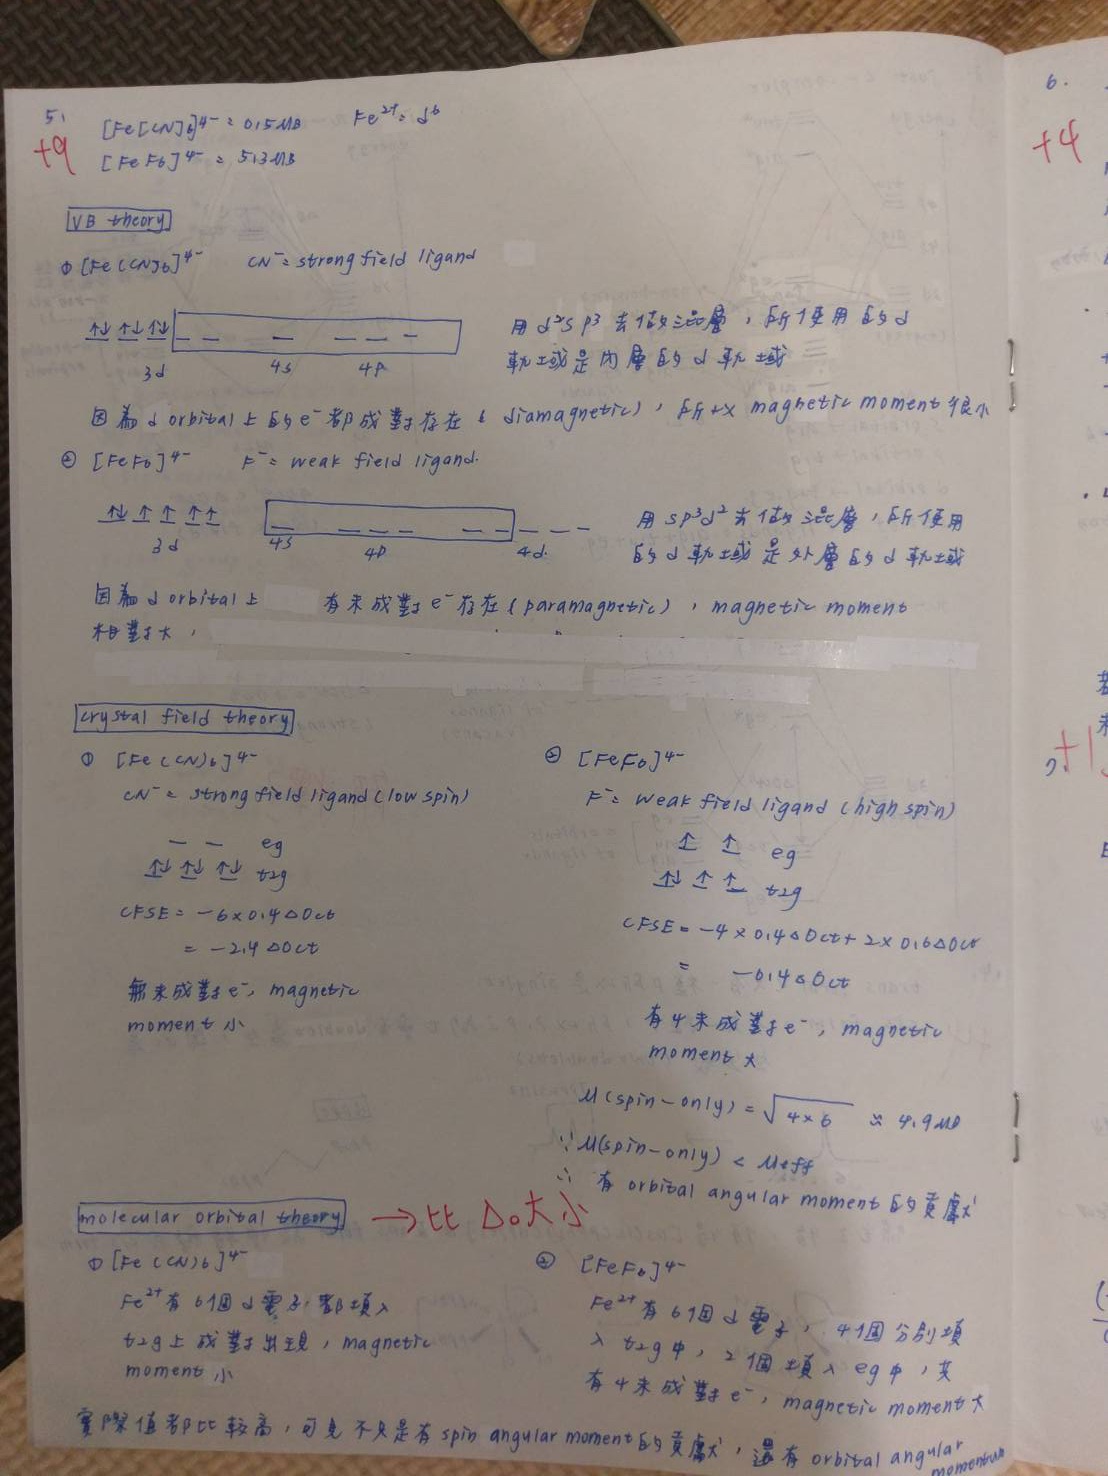 5.
+9
[Fe[CN]6]4- = 0.5 MB Fe2+ = d6
[FeF6]4- = 5.3 MB
VB theory
① [Fe(CN)6]4- CN- = strong field ligand
⇅ ⇅ ⇅ _ _ _ _ _ _
3d 4s 4p
用 d2sp3 去做混層,所使用的 d
軌域是內層的 d 軌域
因為 d orbital 上的 e- 都成對存在 (diamagnetic),所以 magnetic moment 很小
② [FeF6]4- F- = weak field ligand.
⇅ ↑ ↑ ↑ ↑ _ _ _ _ _ _ _ _ _
3d 4s 4p 4d
用 sp3d2 去做混層,所使用
的 d 軌域是外層的 d 軌域
因為 d orbital 上 有未成對 e- 存在 (paramagnetic),magnetic moment
相對大,
crystal field theory
① [Fe(CN)6]4-
CN- = strong field ligand (low spin)
_ _ eg
⇅ ⇅ ⇅ t2g
CFSE = -6×0.4ΔOct
= -2.4ΔOct
無未成對 e-, magnetic
moment 小
② [FeF6]4-
F- = weak field ligand (high spin)
↑ ↑ eg
⇅ ↑ ↑ t2g
CFSE = -4×0.4ΔOct + 2×0.6ΔOct
= -0.4ΔOct
有4未成對 e-, magnetic
moment 大
M(spin-only) = √4×6 ≈ 4.9MB
∵ M(spin-only) < Meff
∴ 有 orbital angular moment 的貢獻
molecular orbital theory → 比 Δo大小
① [Fe(CN)6]4-
Fe2+有6個d電子都填入
t2g上成對出現,magnetic
moment 小
② [FeF6]4-
Fe2+有6個d電子,4個分別填
入t2g中,2個填入eg中,共
有4未成對 e-, magnetic moment 大
實際值都比較高,可見不只是有 spin angular moment 的貢獻,還有 orbital angular
momentum
6.
+4
+1